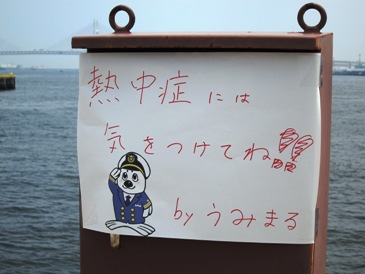 熱中症には
気をつけてね!!
by うみまる